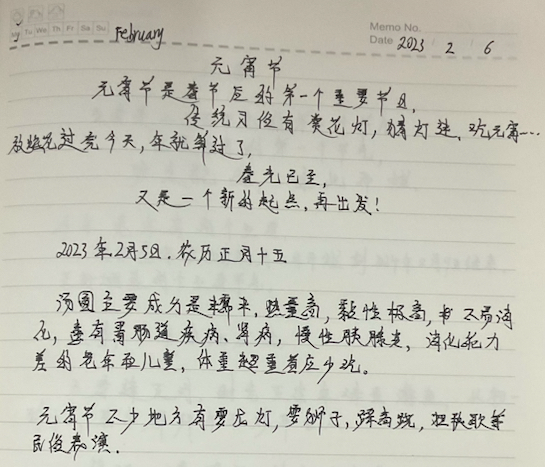 Mo Tu We Th Fr Sa Su
February
Memo No.
Date 2023 / 2 / 6
元宵节
元宵节是春节后的第一个重要节日,
传统习俗有赏花灯,猜灯谜,吃元宵…
放烟花过完今天,年就算过了,
春光已至,
又是一个新的起点,再出发!
2023年2月5日.农历正月十五
汤圆主要成分是糯米,热量高,黏性极高,并不易消
化,患有胃肠道疾病、肾病,慢性胰腺炎,消化能力
差的老年和儿童,体重超重者应少吃。
元宵节不少地方有耍龙灯,耍狮子,踩高跷,扭秧歌等
民俗表演.